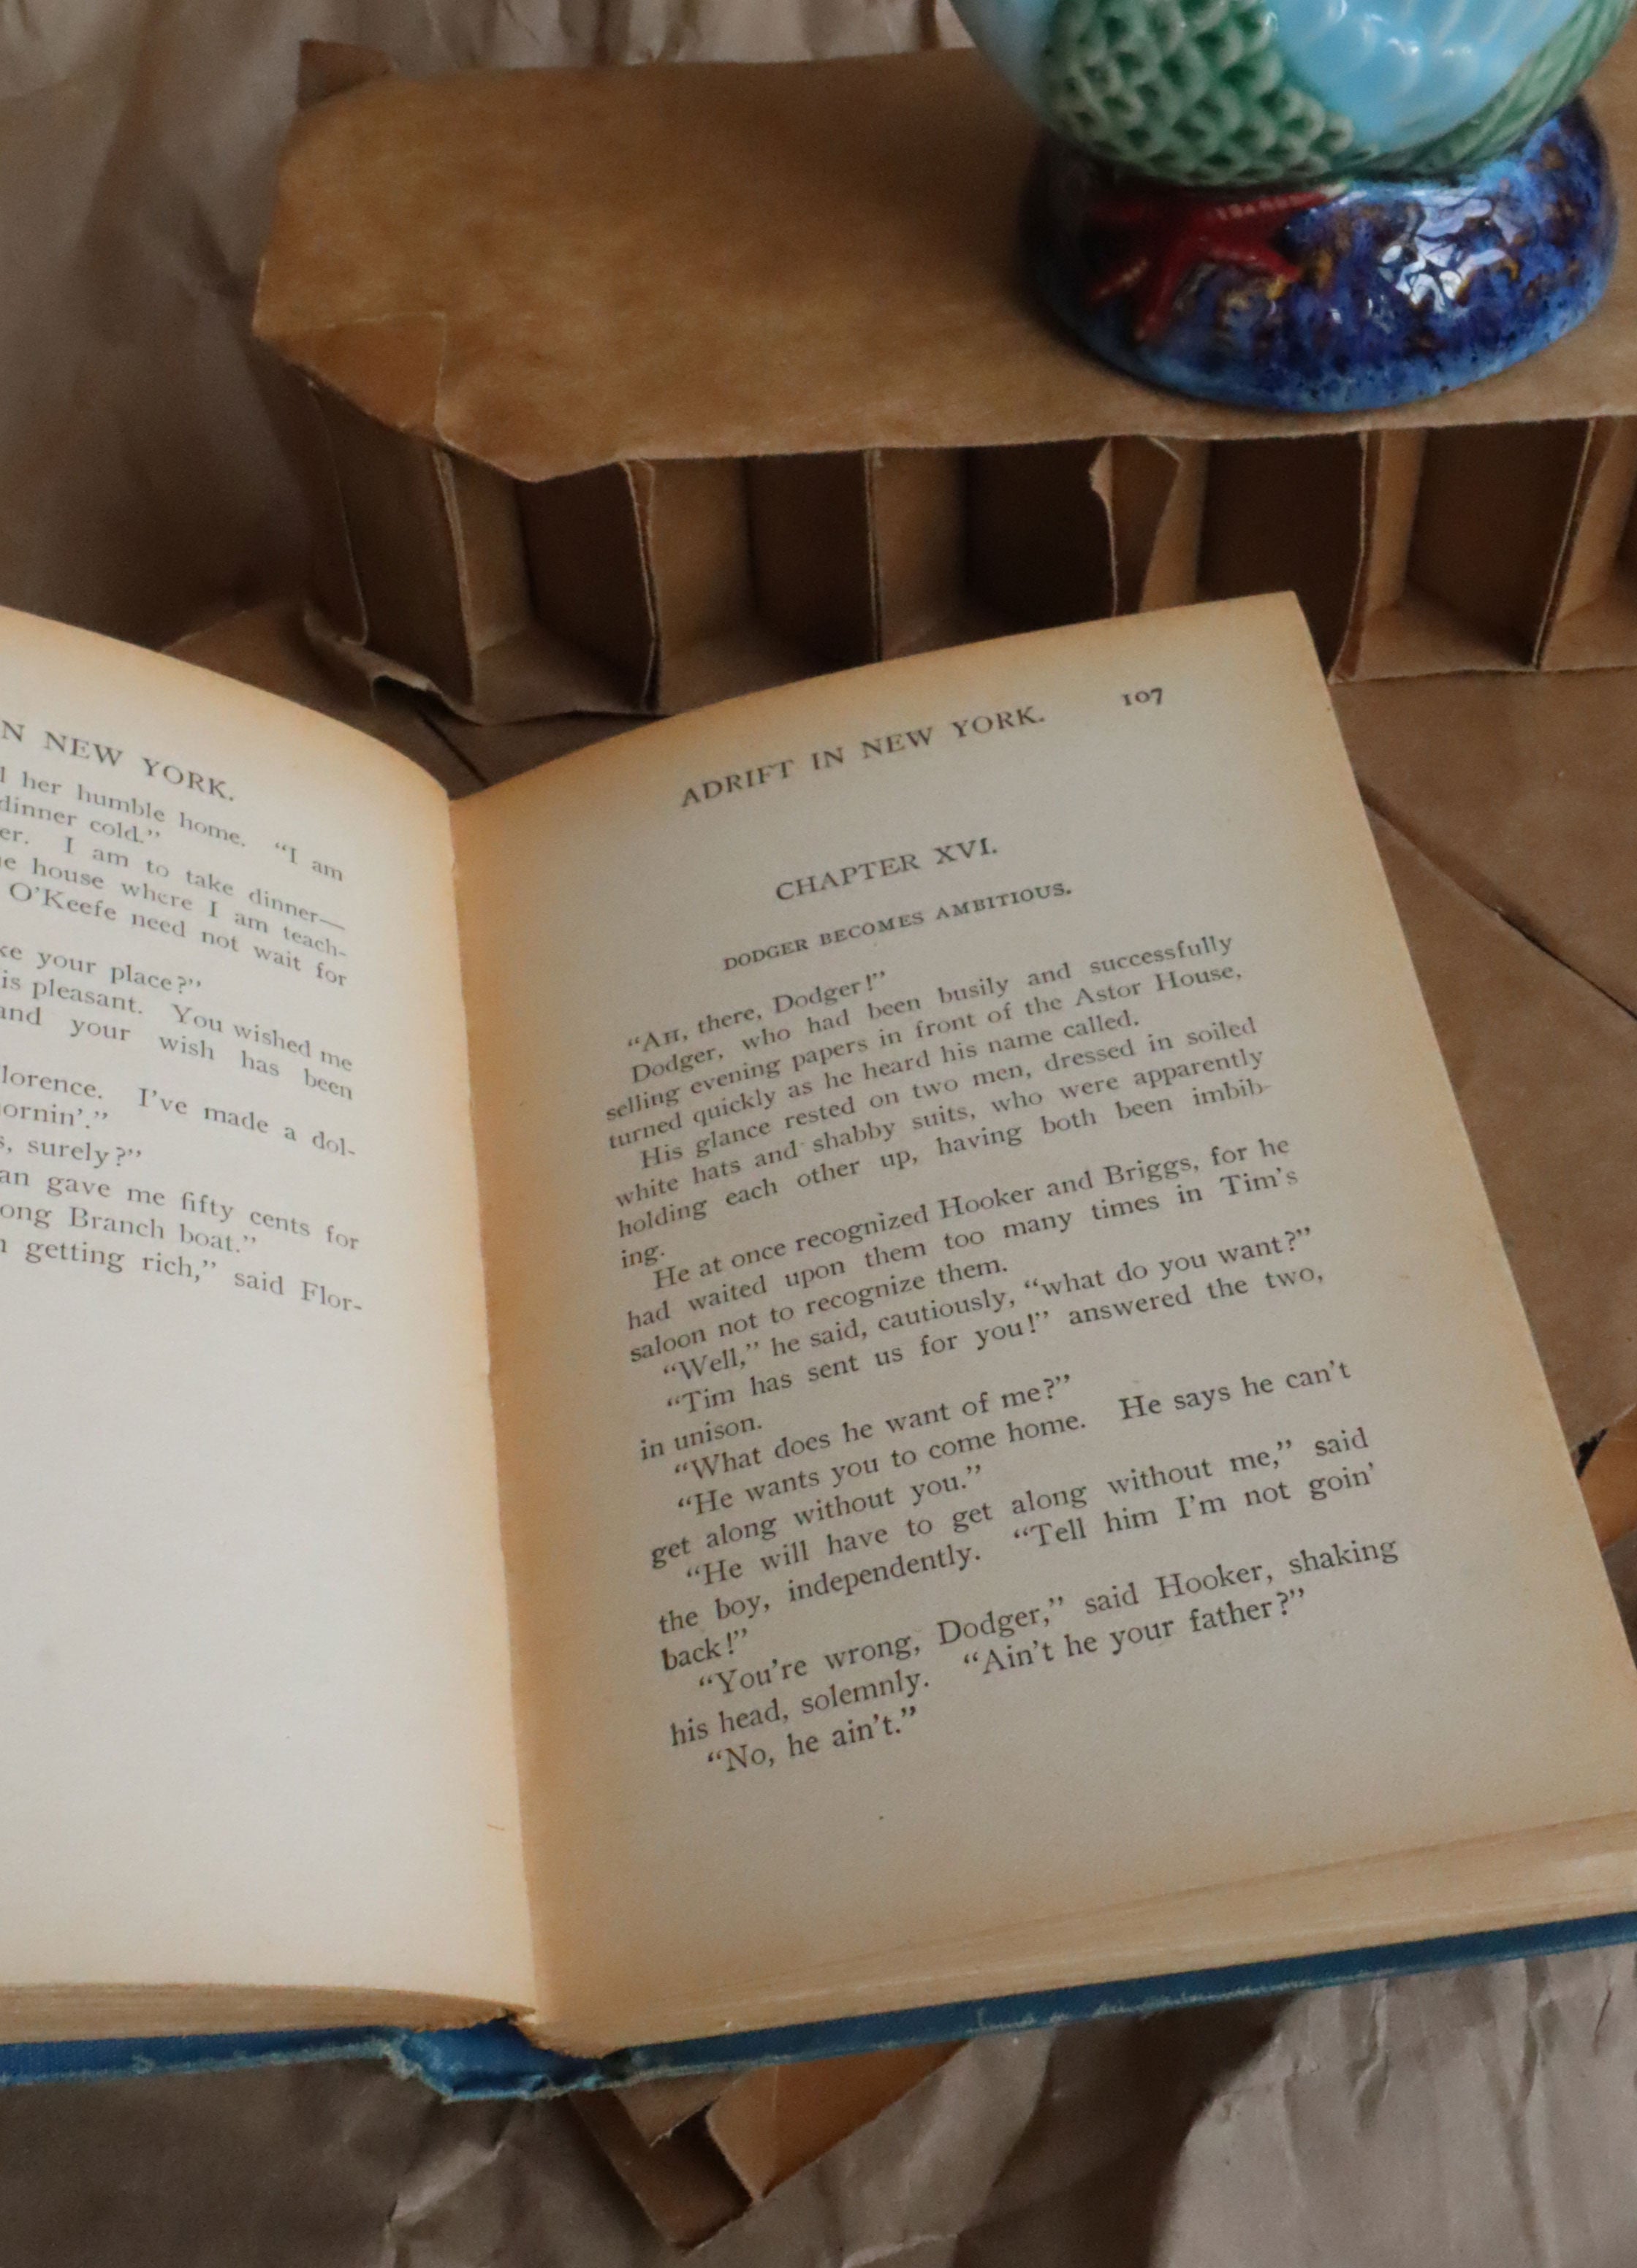 N NEW YORK.
her humble home. “I am
dinner cold.”
er. I am to take dinner—
e house where I am teach-
O’Keefe need not wait for
ke your place?”
is pleasant. You wished me
and your wish has been
lorence. I’ve made a dol-
ornin’.”
s, surely?”
an gave me fifty cents for
ong Branch boat.”
getting rich,” said Flor-
ADRIFT IN NEW YORK. 107
CHAPTER XVI.
DODGER BECOMES AMBITIOUS.
“AH, there, Dodger!”
Dodger, who had been busily and successfully
selling evening papers in front of the Astor House,
turned quickly as he heard his name called.
His glance rested on two men, dressed in soiled
white hats and shabby suits, who were apparently
holding each other up, having both been imbib-
ing.
He at once recognized Hooker and Briggs, for he
had waited upon them too many times in Tim’s
saloon not to recognize them.
“Well,” he said, cautiously, “what do you want?”
“Tim has sent us for you!” answered the two,
in unison.
“What does he want of me?”
“He wants you to come home. He says he can’t
get along without you.”
“He will have to get along without me,” said
the boy, independently. “Tell him I’m not goin’
back!”
“You’re wrong, Dodger,” said Hooker, shaking
his head, solemnly. “Ain’t he your father?”
“No, he ain’t.”